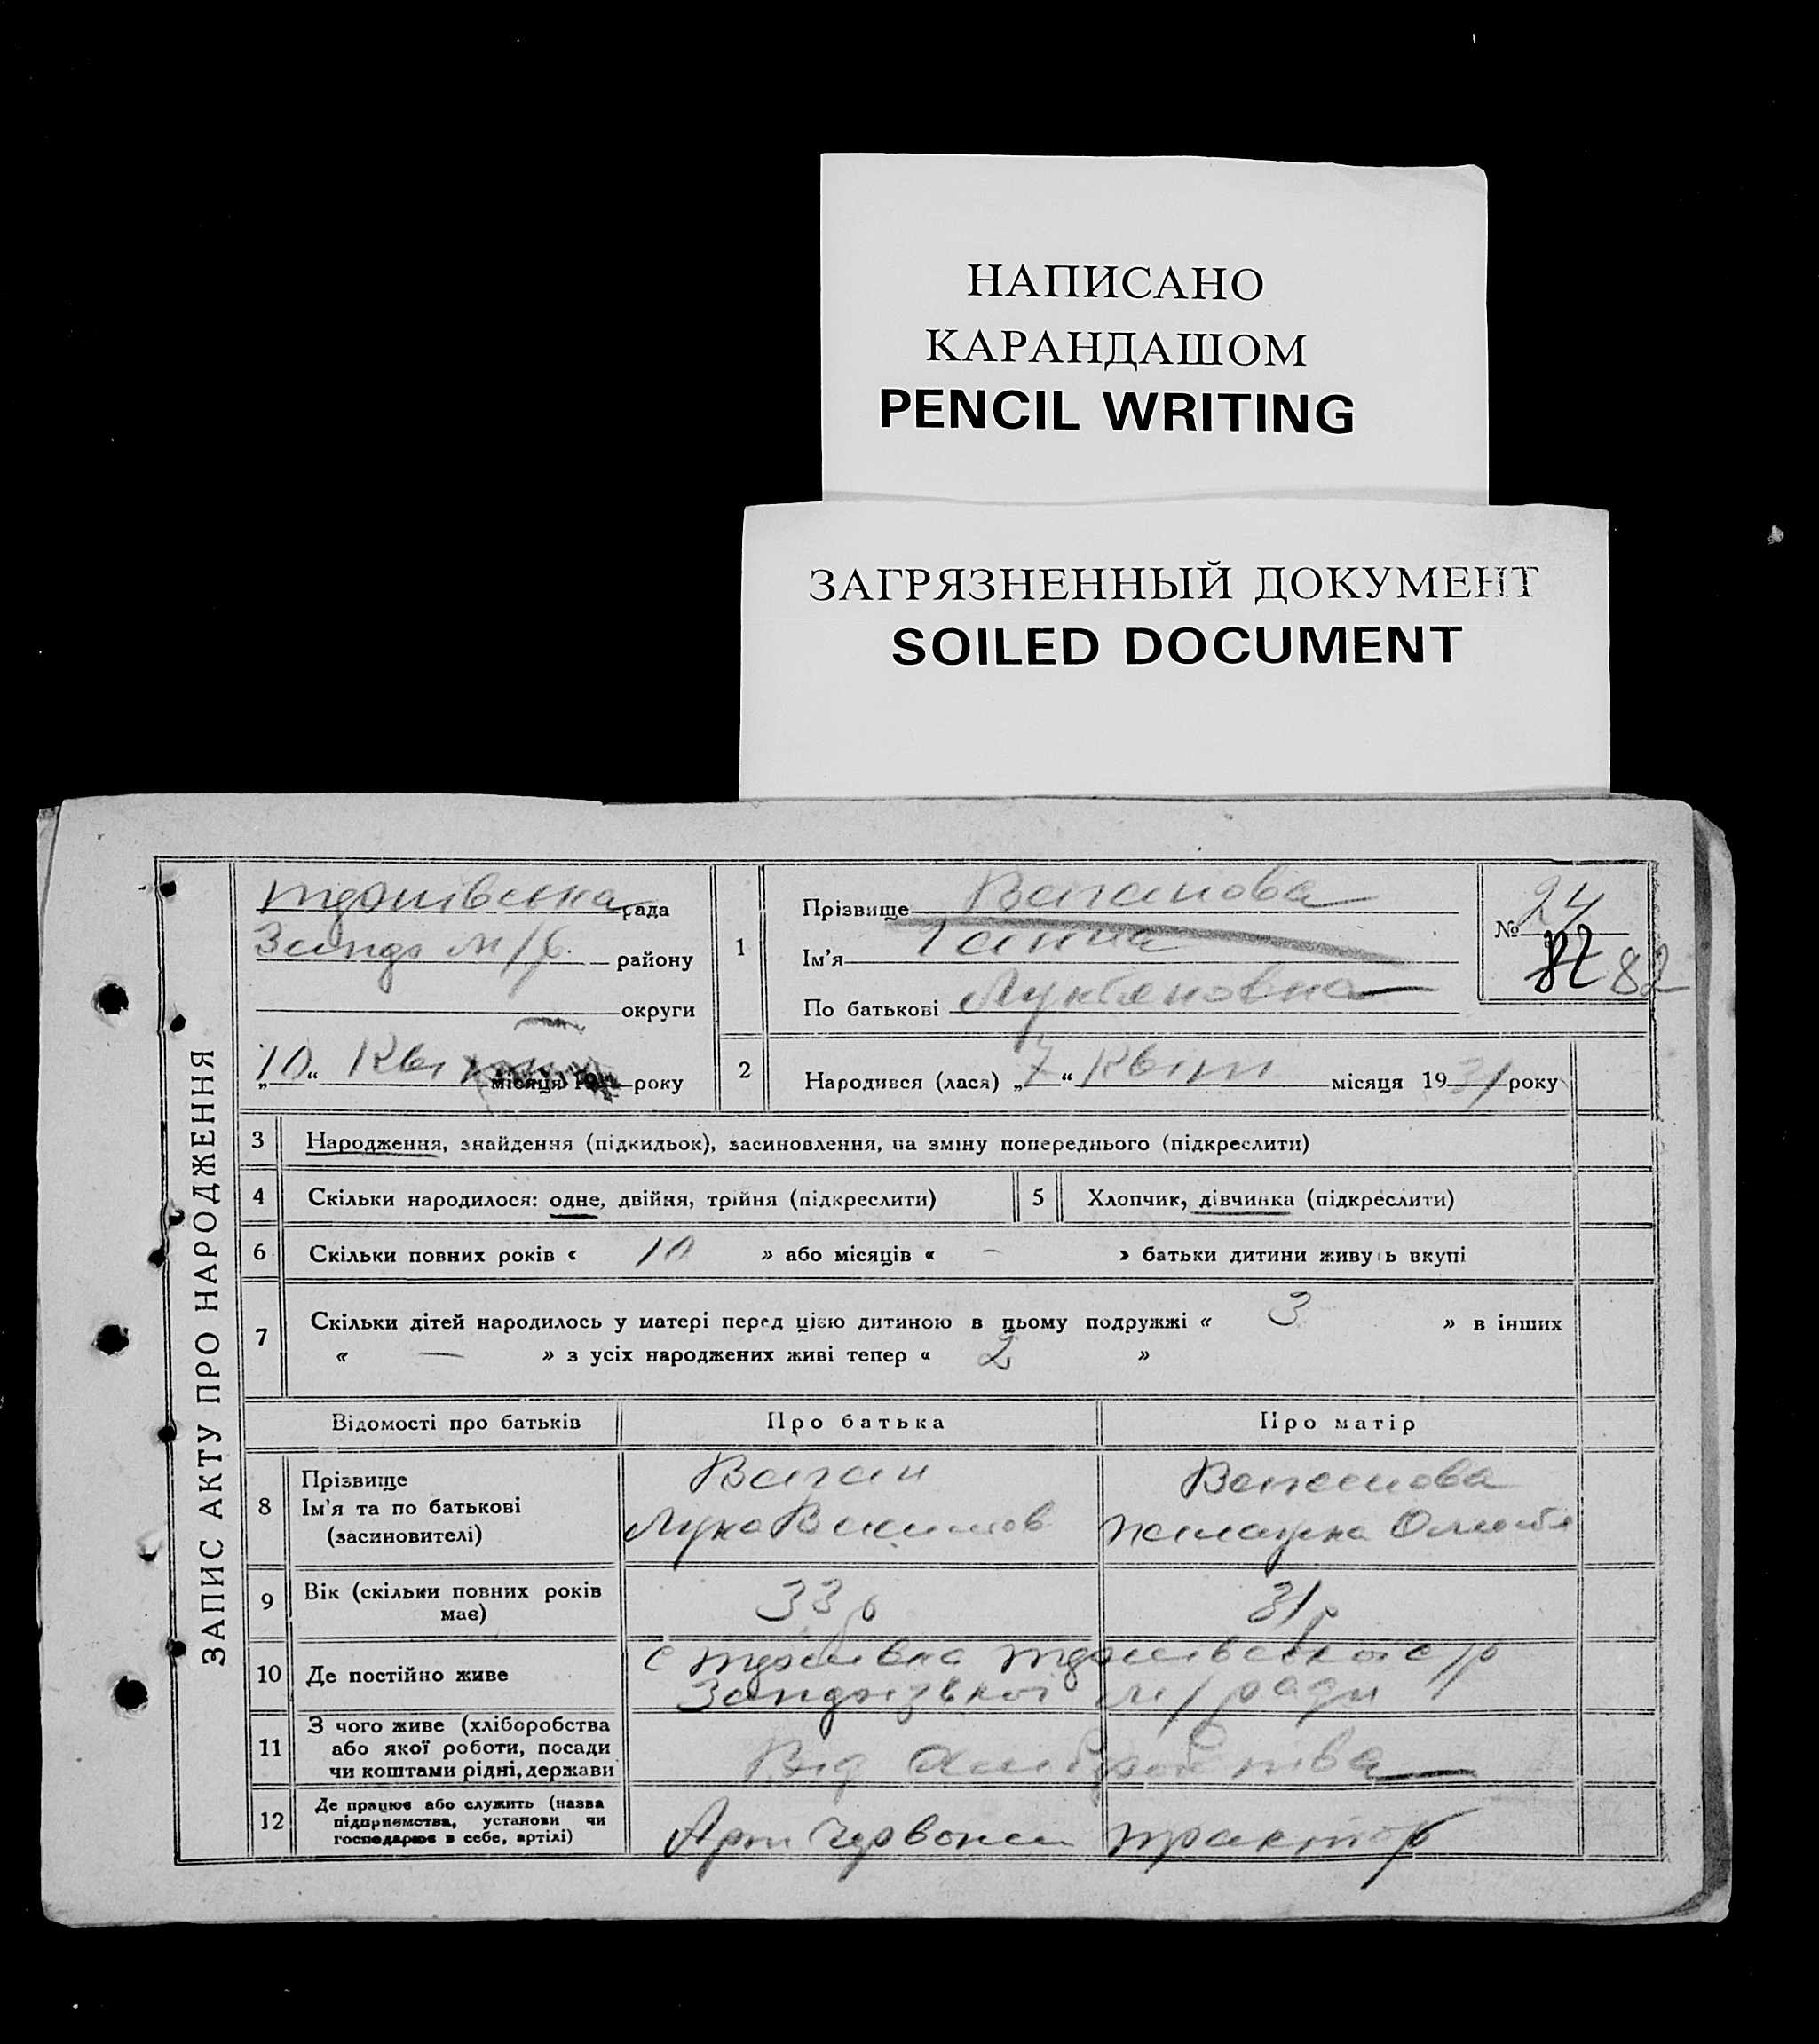 НАПИСАНО
КАРАНДАШОМ
PENCIL WRITING
ЗАГРЯЗНЕННЫЙ ДОКУМЕНТ
SOILED DOCUMENT
ЗАПИС АКТУ ПРО НАРОДЖЕННЯ
рада
району
округи
„10“ Кві місяця 19 року
1
Прізвище
Ім'я Ганна
По батькові Лукʼяновна
№ 24
82 82
2
Народився (лася) „7“ Квіт місяця 1931 року
3 Народження, знайдення (підкидьок), засиновлення, на зміну попереднього (підкреслити)
4 Скільки народилося: одне, двійня, трійня (підкреслити)
5 Хлопчик, дівчинка (підкреслити)
6 Скільки повних років « 10 » або місяців « – » батьки дитини живуть вкупі
7 Скільки дітей народилось у матері перед цією дитиною в цьому подружжі « 3 » в інших
« — » з усіх народжених живі тепер « 2 »
Відомості про батьків Про батька Про матір
8 Прізвище
Ім'я та по батькові
(засиновителі)
Лука
9 Вік (скільки повних років
має)
33 р 31 р
10 Де постійно живе
с с/р
м/ради
11 З чого живе (хліборобства
або якої роботи, посади
чи коштами рідні, держави
Від
12 Де працює або служить (назва
підприємства, установи чи
господарює в себе, артілі)
Арт Червоний трактор